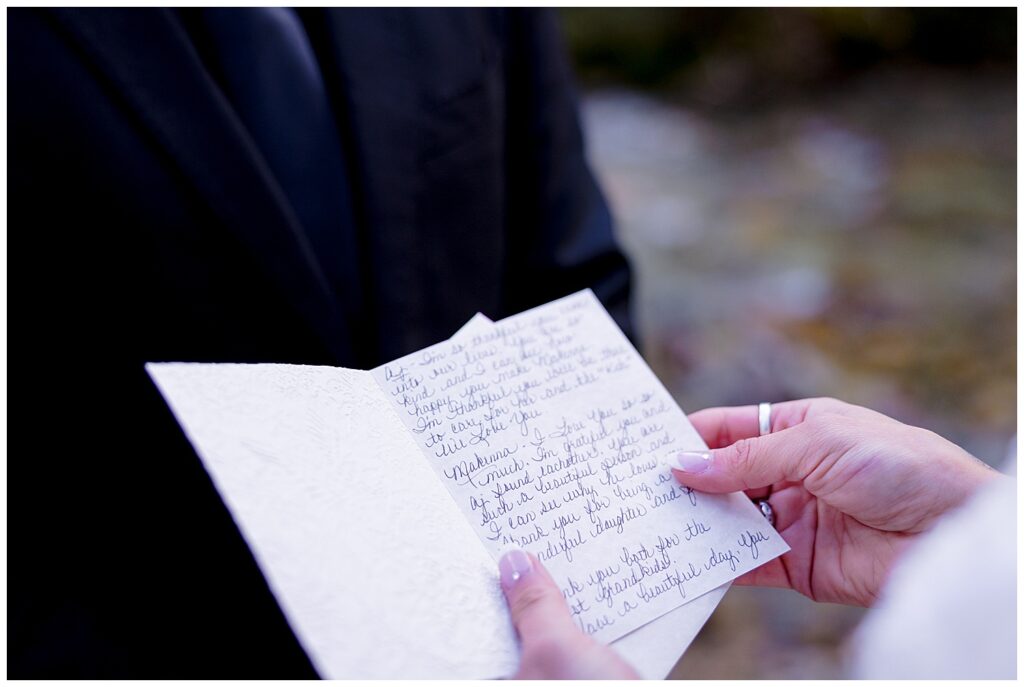 AJ - I'm so thankful you came
into our lives. You are so
kind and I can see how
happy you make Makenna
I'm thankful you will be there
to care for her and the "Kids"
We Love You
Makenna - I Love You so so
much. I'm grateful you and
AJ found eachother. You are
such a beautiful person and
I can see why he loves you
Thank you for being a
wonderful daughter and
you both for the
grandkids!
Have a beautiful day. You